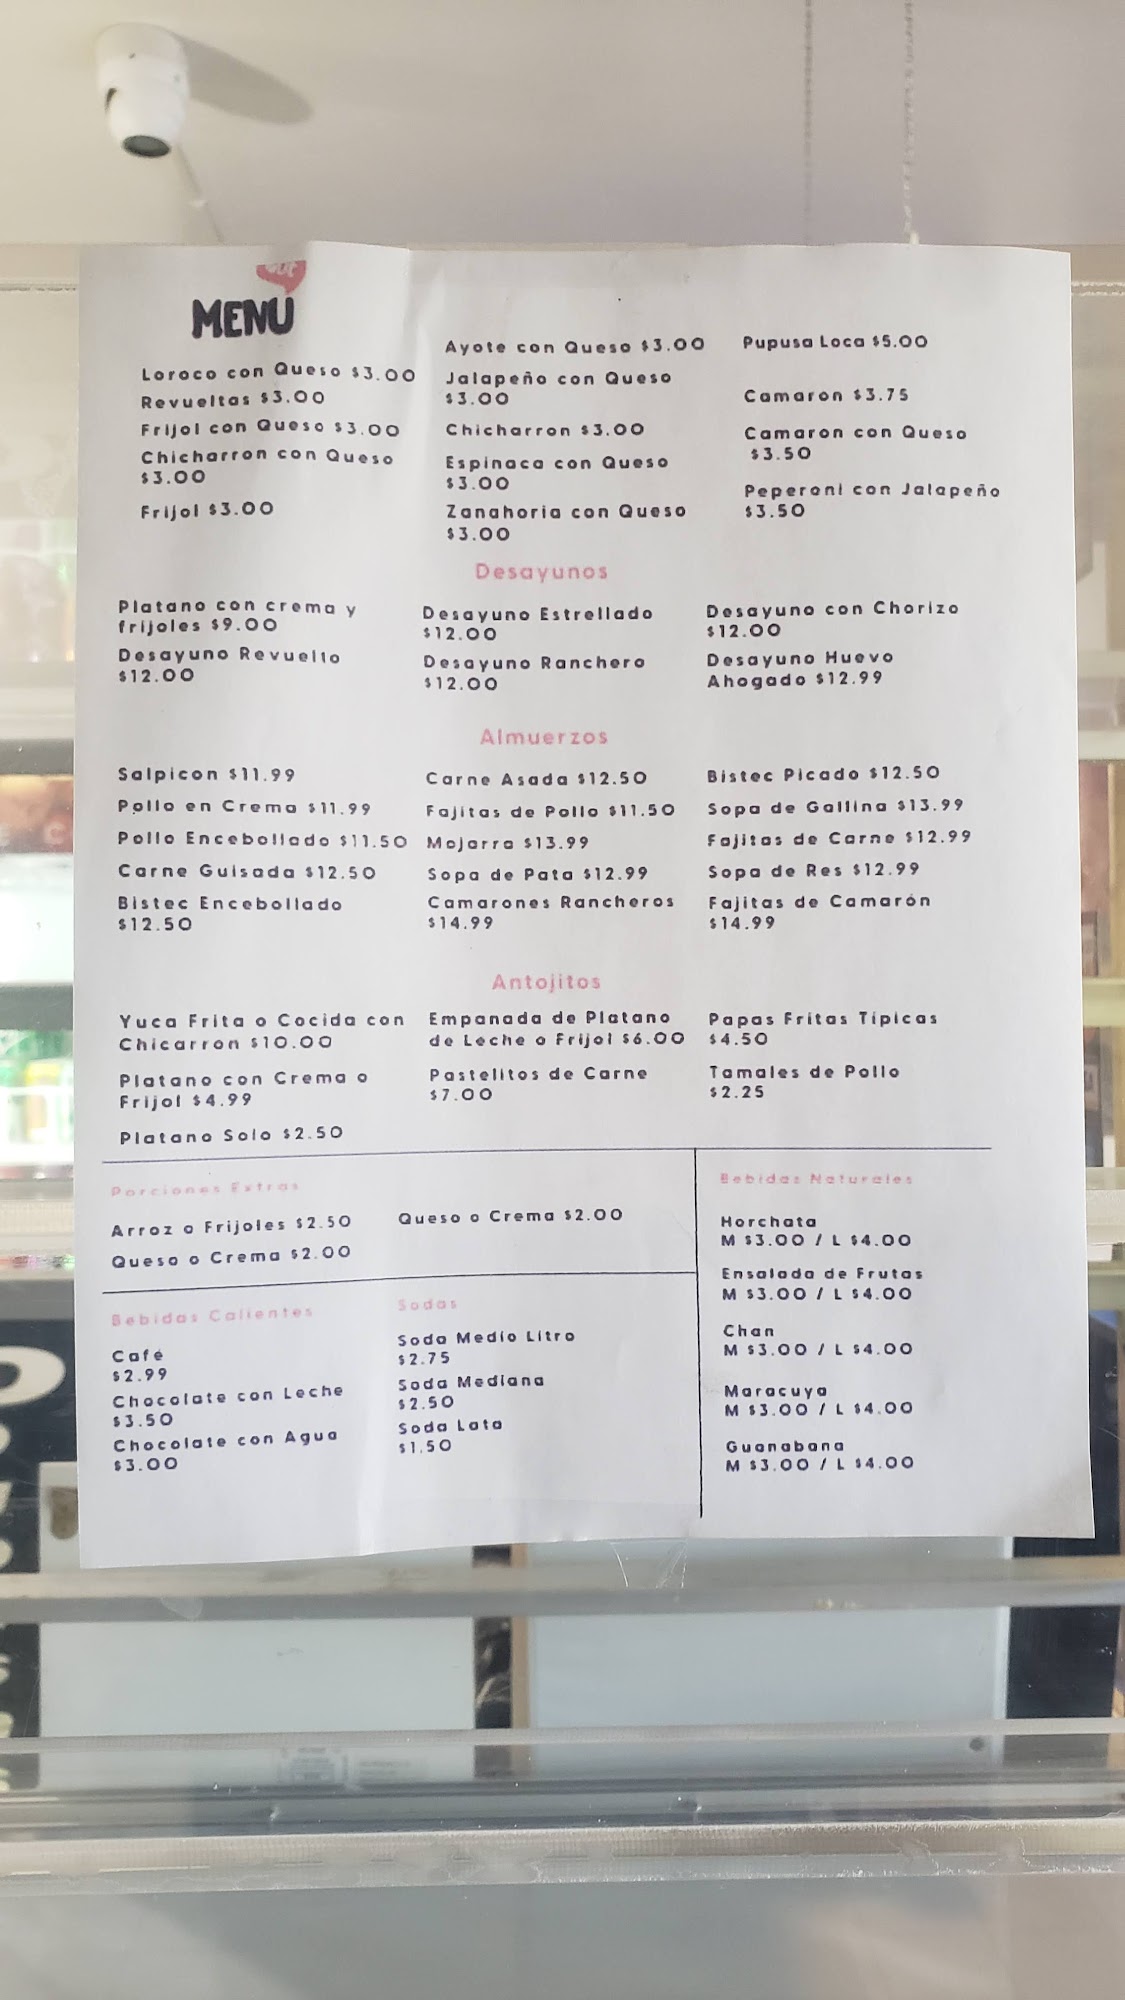 MENU
Loroco con Queso $3.00
Revueltas $3.00
Frijol con Queso $3.00
Chicharron con Queso
$3.00
Frijol $3.00
Ayote con Queso $3.00
Jalapeño con Queso
$3.00
Chicharron $3.00
Espinaca con Queso
$3.00
Zanahoria con Queso
$3.00
Pupusa Loca $5.00
Camaron $3.75
Camaron con Queso
$3.50
Peperoni con Jalapeño
$3.50
Desayunos
Platano con crema y
frijoles $9.00
Desayuno Revuelto
$12.00
Desayuno Estrellado
$12.00
Desayuno Ranchero
$12.00
Desayuno con Chorizo
$12.00
Desayuno Huevo
Ahogado $12.99
Almuerzos
Salpicon $11.99
Pollo en Crema $11.99
Pollo Encebollado $11.50
Carne Guisada $12.50
Bistec Encebollado
$12.50
Carne Asada $12.50
Fajitas de Pollo $11.50
Mojarra $13.99
Sopa de Pata $12.99
Camarones Rancheros
$14.99
Bistec Picado $12.50
Sopa de Gallina $13.99
Fajitas de Carne $12.99
Sopa de Res $12.99
Fajitas de Camarón
$14.99
Antojitos
Yuca Frita o Cocida con
Chicarron $10.00
Platano con Crema o
Frijol $4.99
Platano Solo $2.50
Empanada de Platano
de Leche o Frijol $6.00
Pastelitos de Carne
$7.00
Papas Fritas Tipicas
$4.50
Tamales de Pollo
$2.25
Porciones Extras
Arroz o Frijoles $2.50
Queso o Crema $2.00
Queso o Crema $2.00
Bebidas Calientes
Café
$2.99
Chocolate con Leche
$3.50
Chocolate con Agua
$3.00
Sodas
Soda Medio Litro
$2.75
Soda Mediana
$2.50
Soda Lata
$1.50
Bebidas Naturales
Horchata
M $3.00 / L $4.00
Ensalada de Frutas
M $3.00 / L $4.00
Chan
M $3.00 / L $4.00
Maracuya
M $3.00 / L $4.00
Guanabana
M $3.00 / L $4.00